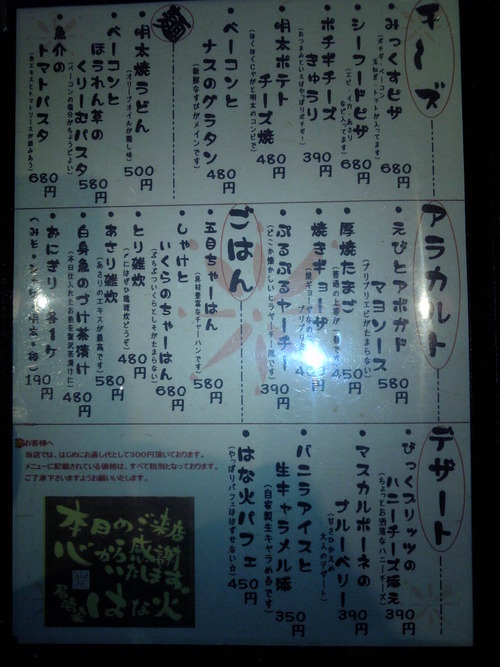 チーズ
・みっくすピザ
(ポテギ・ベーコン
玉ねぎ・トマトが入ってます)
680円
・シーフードピザ
(エビ、イカ、あさり
など入ってます)
680円
・ポチギチーズ
きゅうり
(おつまみといえばやっぱりポチギー!)
390円
・明太ポテト
チーズ焼
(ほくほくじゃがと明太のコンビで)
480円
・ベーコンと
ナスのグラタン
(新鮮なナスがメインです)
480円
麺
・明太焼うどん
(オリーブオイルが隠し味)
500円
・ベーコンと
ほうれん草の
くりーむパスタ
580円
・魚介の
トマトパスタ
(魚エキスとトマトソースが絡みあう)
680円
アラカルト
・えびとアボガド
マヨソース
(プリプリエビがたまらない)
580円
・厚焼たまご
450円
・焼きギョーザ
・ぷるぷるヤーチャー
(どこか懐かしいヒラヤーチー風です)
390円
ごはん
・五目ちゃーはん
(具材豊富なチャーハンです)
580円
・しゃけと
いくらのちゃーはん
(ぷちぷちいくらとしそがたまらない)
680円
・とり雑炊
(〆にはぜひ鶏雑炊どうぞ)
480円
・あさり雑炊
(あさりのエキスが最高です)
580円
・白身魚のづけ茶漬け
(本日仕入れたお魚を贅沢茶漬けに)
480円
・おにぎり各一ケ
190円
デザート
・びっくプリッツの
ハニーチーズ添え
(ちょっとお洒落なハニーチーズ)
390円
・マスカルポーネの
ブルーベリー
(甘さひかえめ
大人のデザート)
390円
・バニラアイスと
生キャラメル添
(自家製生キャラめるです)
350円
・はな火パフェ
(やっぱりパフェははずせない☆)
450円
お客様へ
当店では、はじめにお通し代として300円頂いております。
メニューに記載されている価格は、すべて税別となっております。
ご了承下さいますようお願いいたします。
本日のご来店
心から感謝
いたします
居酒家
はな火